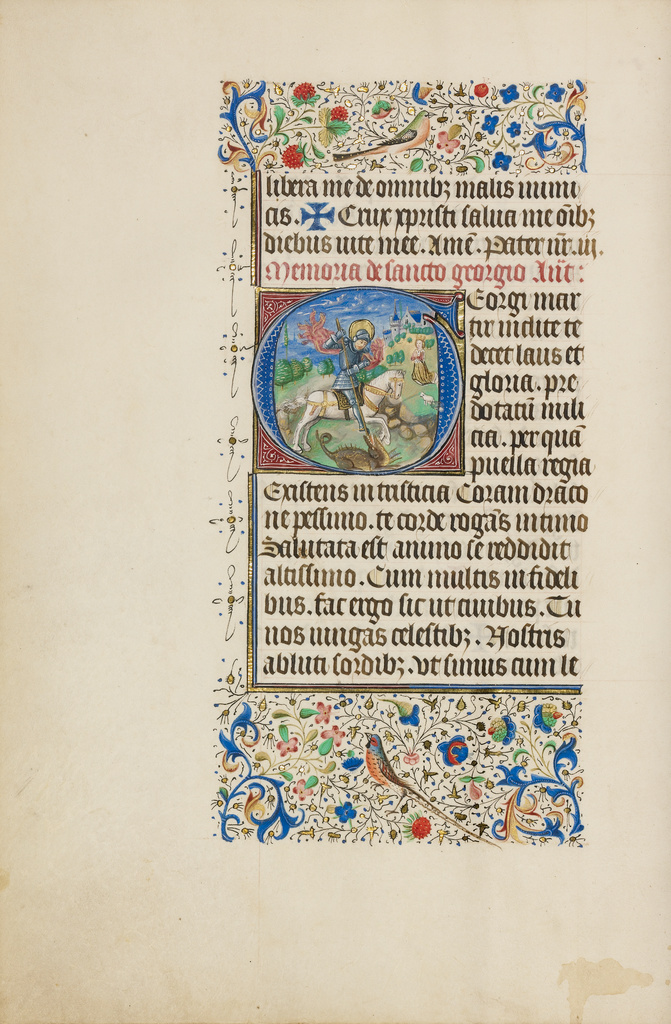 libera me de omnibꝫ malis inimi
cis. ✠ Crux xpristi salua me oībꝫ
diebus uite mee. Amē. Pater nr̄. iii.
Memoria de sancto georgio Ant̄:
GEorgi mar
tir inclite te
decet laus et
gloria. pre
dotatū mili
cia. per quā
puella regia
Existens in tristicia Coram draco
ne pessimo. te corde rogās intimo
Saluata est animo se reddidit
altissimo. Cum multis infideli
bus. fac ergo sic ut ciuibus. Tu
nos iungas celestibꝫ. Nostris
abluti sordibꝫ. vt simus cum le